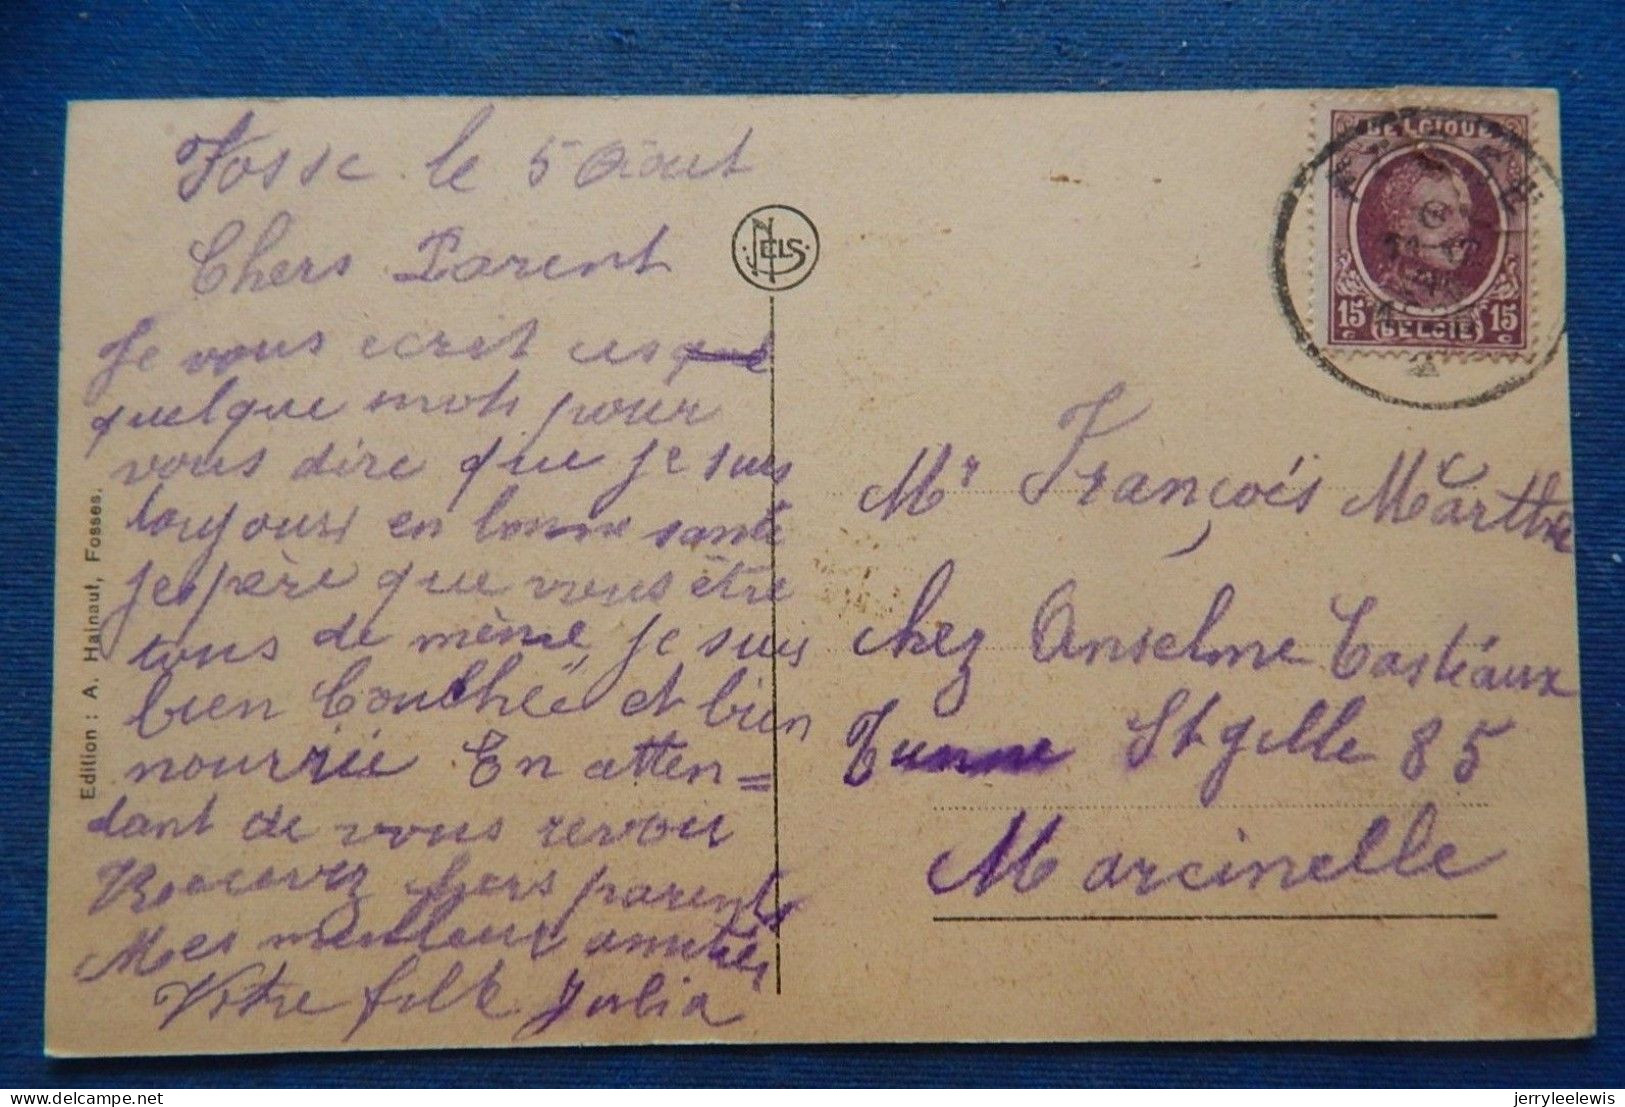 Fosse le 5 Août
Chers Parent
Je vous ecrit ces
quelque mots pour
vous dire que je suis
toujours en bonne santé
jespère que vous être
tous de même je suis
bien Couchée et bien
nourrie En atten=
dant de vous revoir
Recevez chers parents
Mes meilleur amitiés
Votre fille Julia
NELS
Edition : A. Hainaut, Fosses.
BELGIQUE
15 c BELGIË 15 c
Mr François Marthe
chez Anselme Castiaux
St gille 85
Marcinelle
jerryleelewis